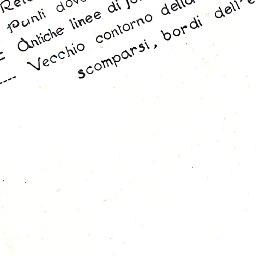 Punti dov
Antiche linee di
Vecchio contorno della
scomparsi, bordi dell'e